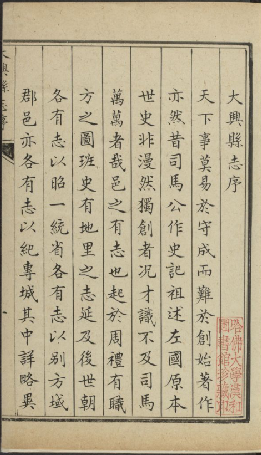 大興縣志序
天下事莫易於守成而難於創始著作
亦然昔司馬公作史記祖述左國原本
世史非漫然獨創者况才識不及司馬
萬萬者哉邑之有志也起於周禮有職
方之圖班史有地里之志延及後世朝
各有志以昭一統省各有志以别方域
郡邑亦各有志以紀專城其中詳略異
大興縣志序
哈佛大學漢和圖書館珍藏印